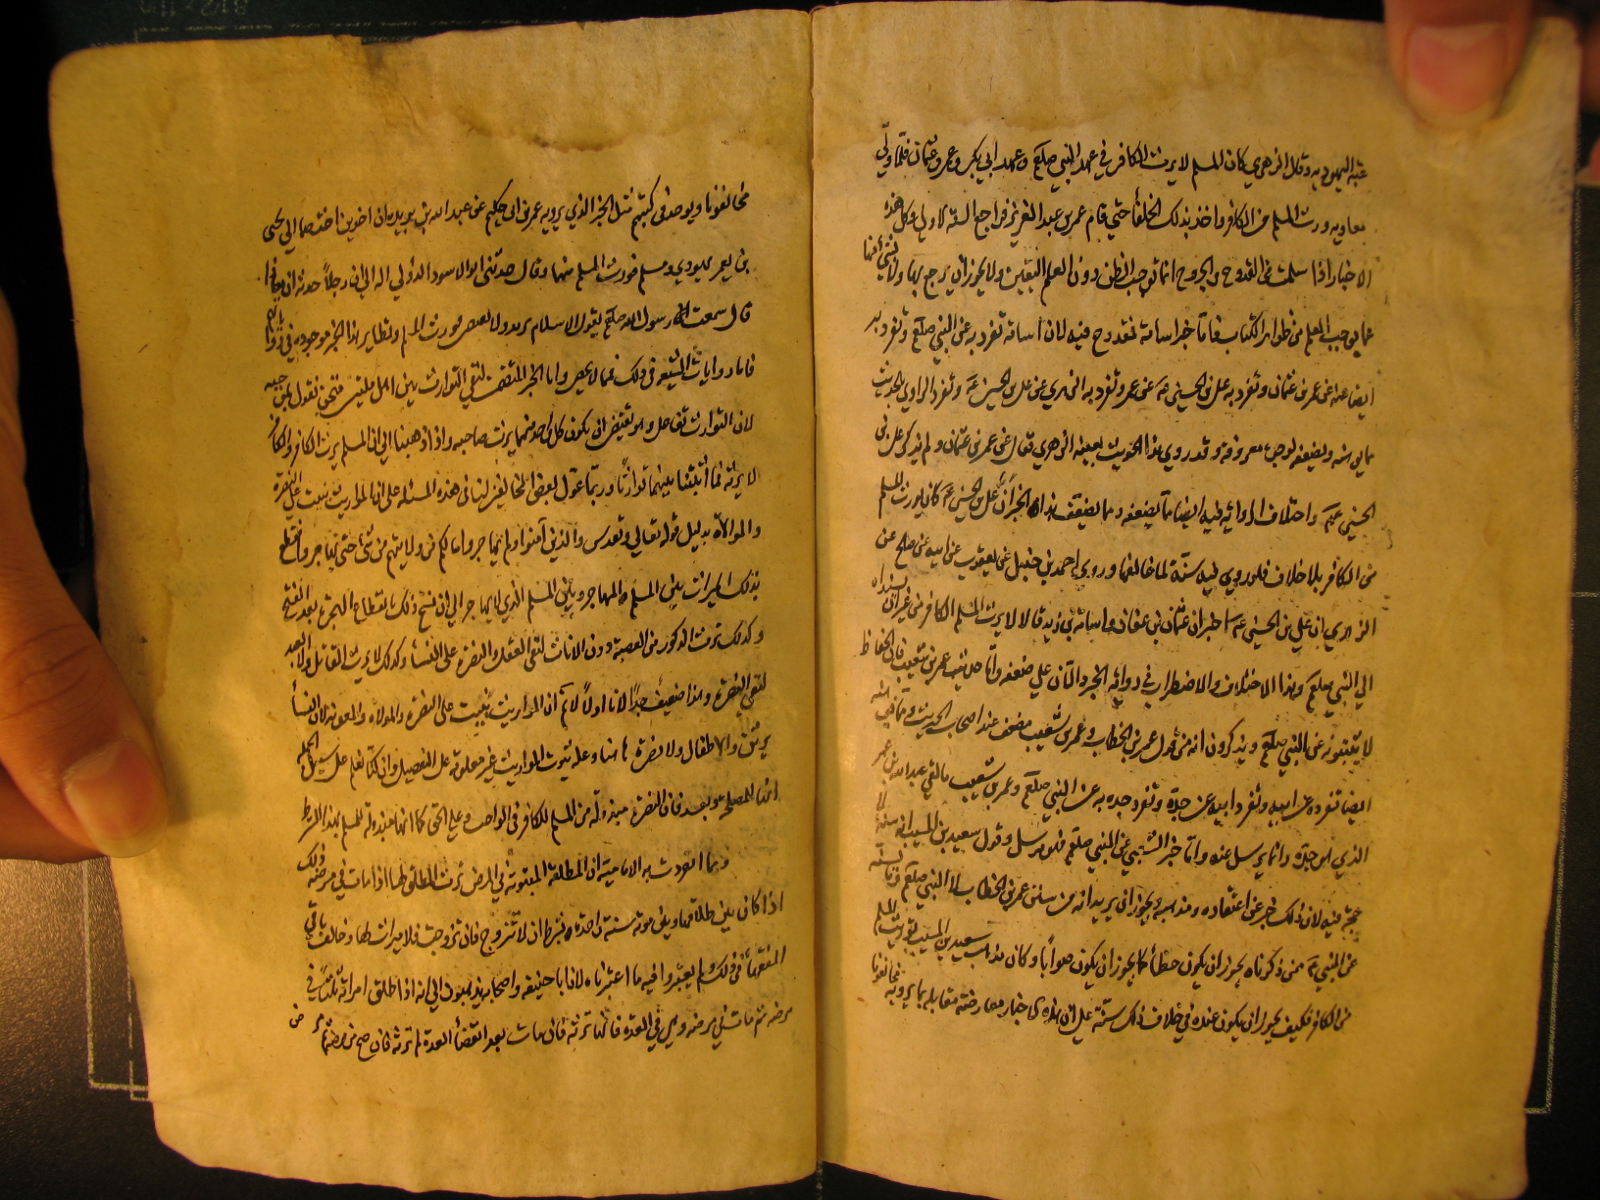 عبد اليهوديه وقال الزهري كان المسلم لا يرث الكافر في عهد النبي صلعم وعهد ابي بكر وعمر وعثمان فلما ولّي
معاويه ورث المسلم من الكافر واخذ بذلك الخلفأ حتي قام عمر بن عبد العزيز فراجع السنة الاولي وكل هذه
الاخبار اذا سلمت من القدوح والجروح انما توجب الظن دون العلم اليقين ولا يجوز ان يرجع بها ولا بشي منها
عما يوجب العلم من ظواهر الكتاب فاما خبر اسامة فمقدوح فيه لان اسامة تفرد به عن النبي صلعم وتفرد به
ايضا عنه عمر بن عثمان وتفرد به علي بن الحسين عه عن عمر وتفرد به الزهري عن علي بن الحسين عه وتفرد الراوي بالحديث
مما يوهنه ويضعفه لوجوه معروفة وقد روي هذا الحديث بعينه الزهري فقال عن عمر بن عثمان ولم يذكر علي بن
الحسين عه واختلاف الرواية فيه ايضا مما يضعفه ومما يضعف هذا الخبر ان علي بن الحسين عه كان يورث المسلم
من الكافر بلا خلاف فلو روي فيه سنة لما خالفها وروي احمد بن حنبل عن يعقوب عن ابيه عن صالح عن
الزهري ان علي بن الحسين عه اخبر ان عثمان بن عفان واسامة بن زيد قالا لا يرث المسلم الكافر من غير ان يسنداه
الي النبي صلعم وهذا الاختلاف والاضطراب في رواية الخبر دالان علي ضعفه واما حديث عمر بن شعيب فان الحفاظ
لا يثبتونه عن النبي صلعم ويذكرون انه من قول عمر بن الخطاب وعمر بن شعيب مضعف عند اصحاب الحديث ومما يوهنه
ايضا تفرده عن ابيه وتفرد ابيه عن جده وتفرد جده به عن النبي صلعم وعمر بن شعيب ما لقي عبد الله بن عمر
الذي هو جده وانما يرسل عنه واما خبر الشعبي عن النبي صلعم فهو مرسل وقول سعيد بن المسيب انه سنة لا
حجة فيه لان ذلك خبر عن اعتقاده ومذهبه ويجوز ان يريد انه من سنن عمر بن الخطاب لا النبي صلعم وما يسنه
عن النبي عه ممن ذكرناه يجوز ان يكون خطأ كما يجوز ان يكون صوابا وكان مذهب سعيد بن المسيب توريث المسلم
من الكافر فكيف يجوز ان يكون عنده في خلاف ذلك سنة علي ان هذه الاخبار معارضة مقابلة بما يرويه مخالفونا
مخالفونا ويوجد في كتبهم مثل الخبر الذي يرويه عمر بن ابي حكيم عن عبد الله بن بريده ان اخوين اختصما الي يحيى
بن يعمر يهودي ومسلم فورث المسلم منهما وقال حدثني ابو الاسود الدؤلي ان رجلاً حدثه ان معاذا
قال سمعت رسول الله صلعم يقول الاسلام يزيد ولا ينقص فورث المسلم ونظاير هذا الخبر موجودة في رواياتهم
فاما روايات الشيعه في ذلك فمما لا يحصى واما الخبر المتضمن لنفي التوارث بين اهل ملتين فنحن نقول بموجبه
لان التوارث تفاعل وهو يقتضي ان يكون كل واحد منهما يرث صاحبه واذا ذهبنا الي ان المسلم يرث الكافر والكافر
لا يرثه فما اثبتنا بينهما توارثا وربما عول بعض المخالفين لنا في هذه المسئلة على ان المواريث بنيت علي النصرة
والموالاة بدليل قوله تعالي وتقدس والذين آمنوا ولم يهاجروا ما لكم من ولايتهم من شئ حتي يهاجروا فقطع
بذلك الميراث بين المسلم المهاجر وبين المسلم الذي لا يهاجر الي ان نسخ ذلك بانقطاع الهجرة بعد الفتح
وكذلك يرث الذكور من العصبة دون الاناث لنفي العقل والنصرة علي النسأ وكذلك لا يرث القاتل ولا العبد
لنفي النصرة وهذا ضعيف جداً لانا اولاً لا نم ان المواريث بنيت علي النصرة والموالاه والمعونه لان النسأ
يرثن والاطفال ولا نصرة هاهنا وعلة ثبوت المواريث غير معلومة علي التفصيل وان كنا نعلم علي سبيل الجملة
انها للمصلحة وبعد فان النصرة مبذولة من المسلم للكافر في الواجب وعلي الحق كما انها مبذولة للمسلم بهذا الشرط
ومما انفردت به الامامية ان المطلقة المبتوتة في المرض ترث المطلق لها اذا مات في مرضه ذلك
اذا كان بين طلاقها وبين موته سنة واحدة بشرط ان لا تتزوج فان تزوجت فلا ميراث لها وخالف باقي
الفقهأ في ذلك ولم يعتبروا فيه ما اعتبرناه لان ابا حنيفه واصحابه يذهبون الي انه اذا طلق امراته ثلثا في
مرضه ثم مات في مرضه وهي في العدة فانها ترثه فان مات بعد انقضأ العدة لم ترثه فان صح من مرضه ثم